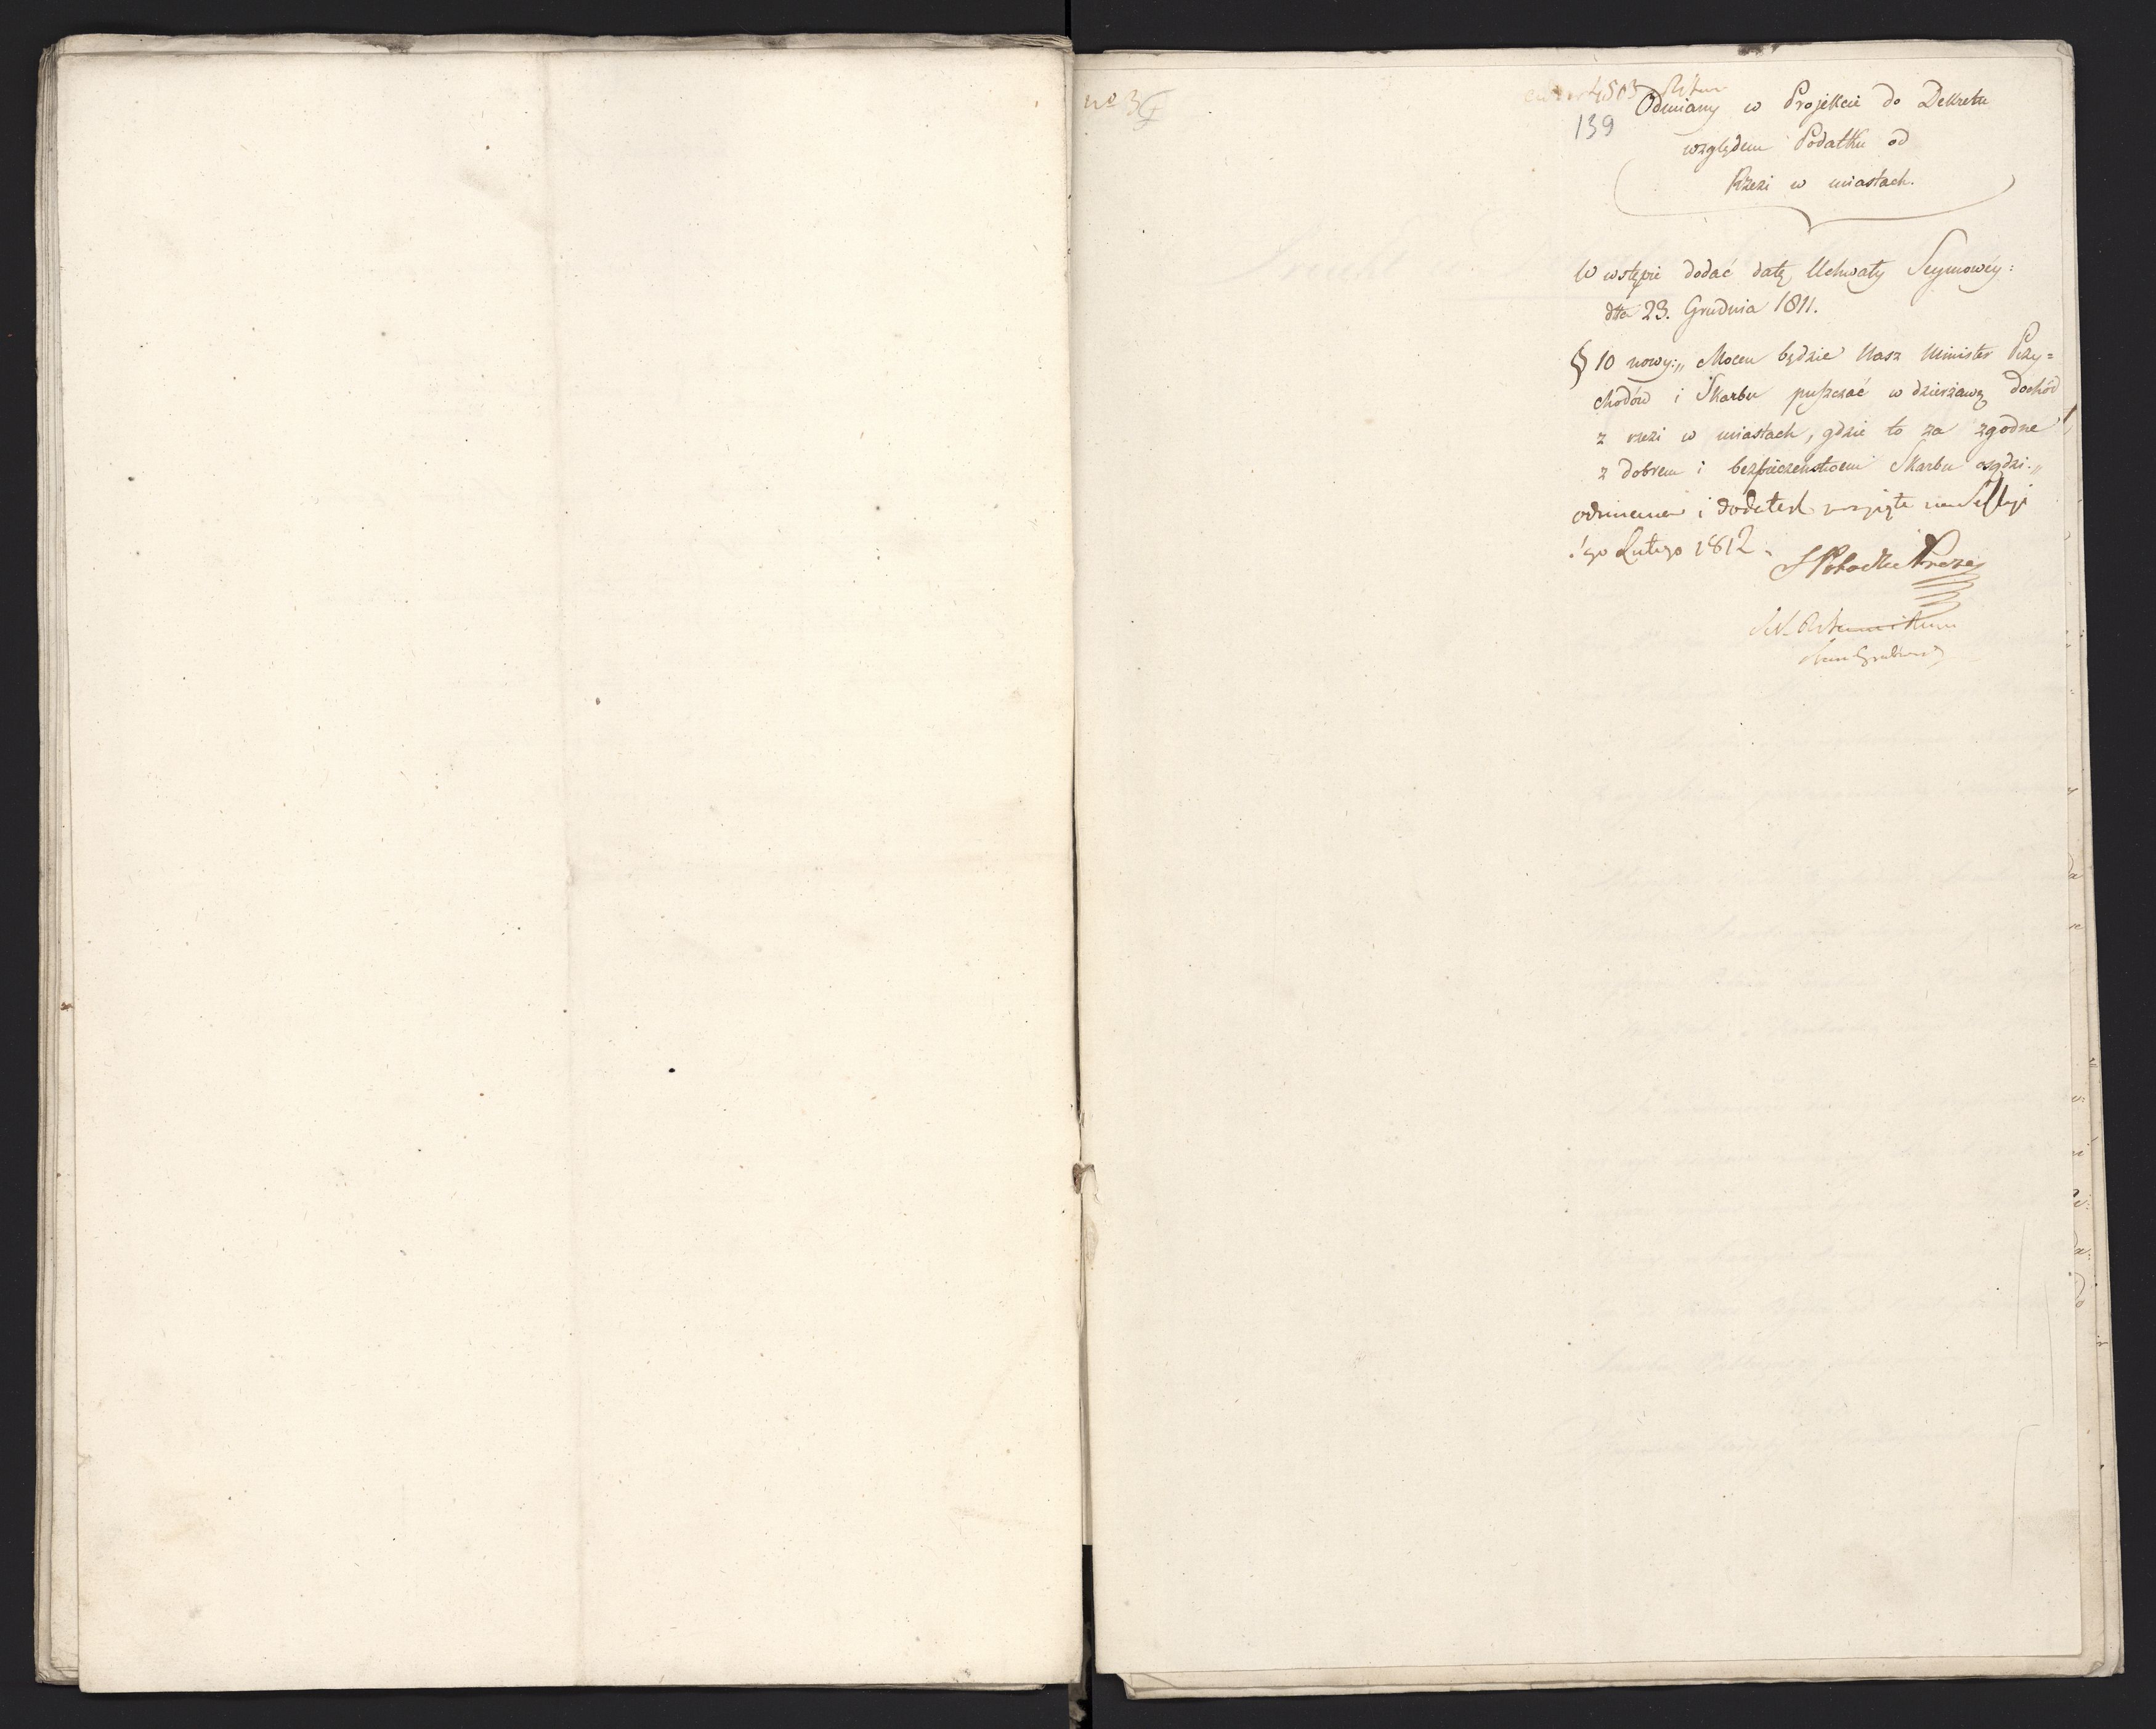 nº 3
4503
139
Odmiany w Projekcie do Dekretu
względem Podatku od
Rzezi w miastach.
W wstępie dodać datę Uchwały Seymowéy:
dtto 23. Grudnia 1811.
§ 10 nowy: „Mocen będzie Nasz Minister Przy=
chodów i Skarbu puszczać w dzierżawę dochód
z rzezi w miastach, gdzie to za zgodne
z dobrem i bezpieczeństwem Skarbu osądzi.„
odmiana i dodatek przyięte na Sessyi
1go Lutego 1812.
S Potocki Prezes